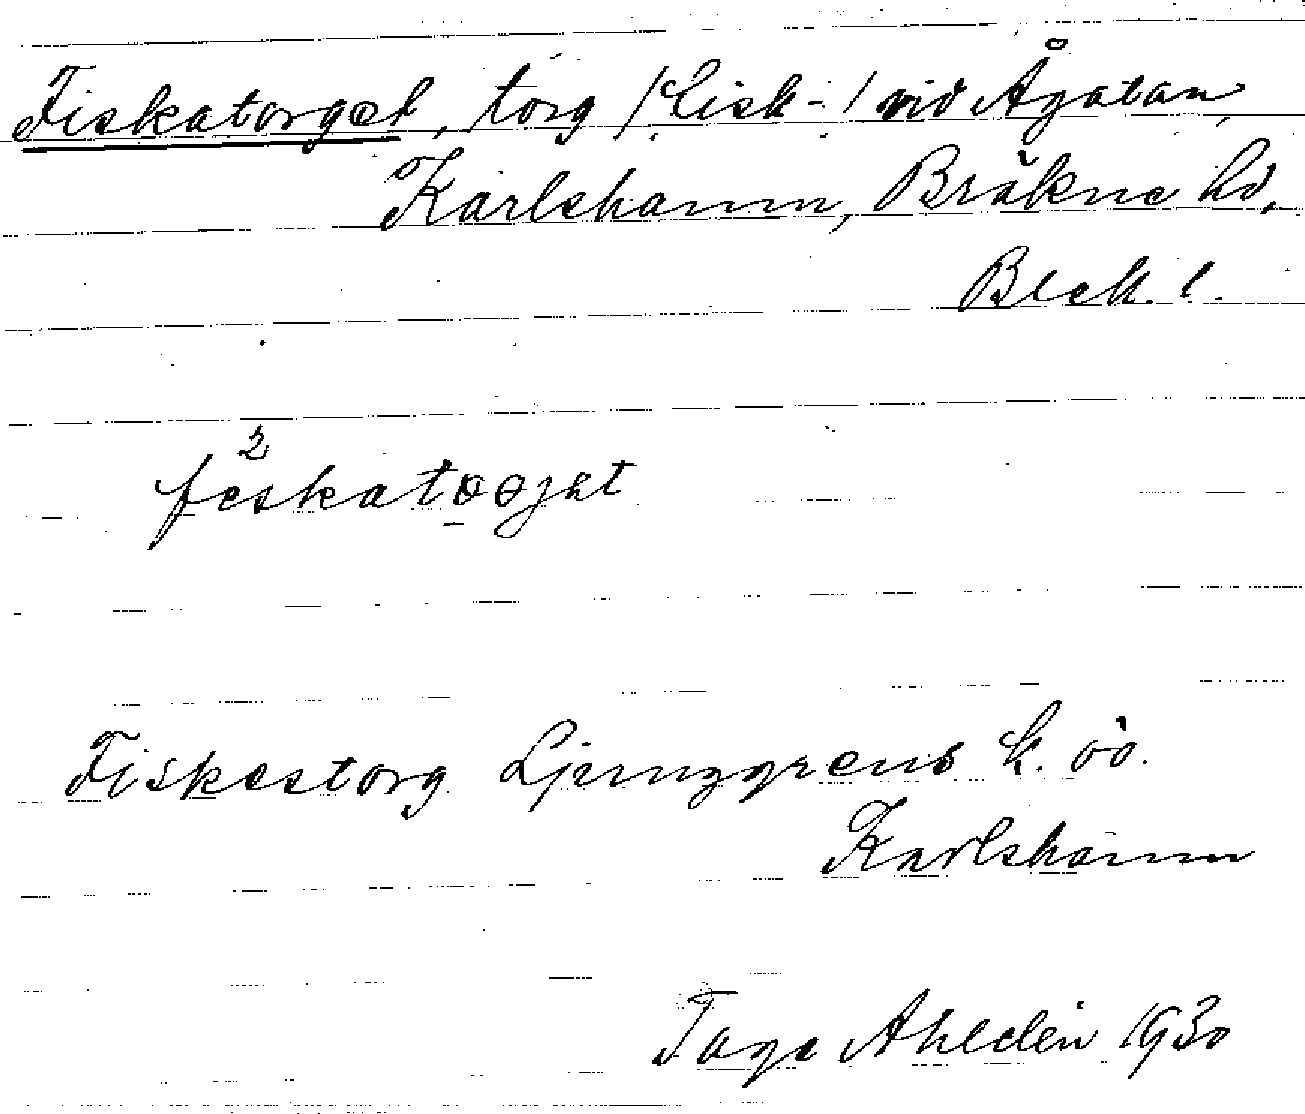 Fiskatorget, torg /fisk-/ vid Ågatan,
Karlshamn, Bräkne hd,
Blek. l.
2
feskatoojet
Fiskestorg Ljunggrens k. öö.
Karlshamn
Tage Ahldén 1930